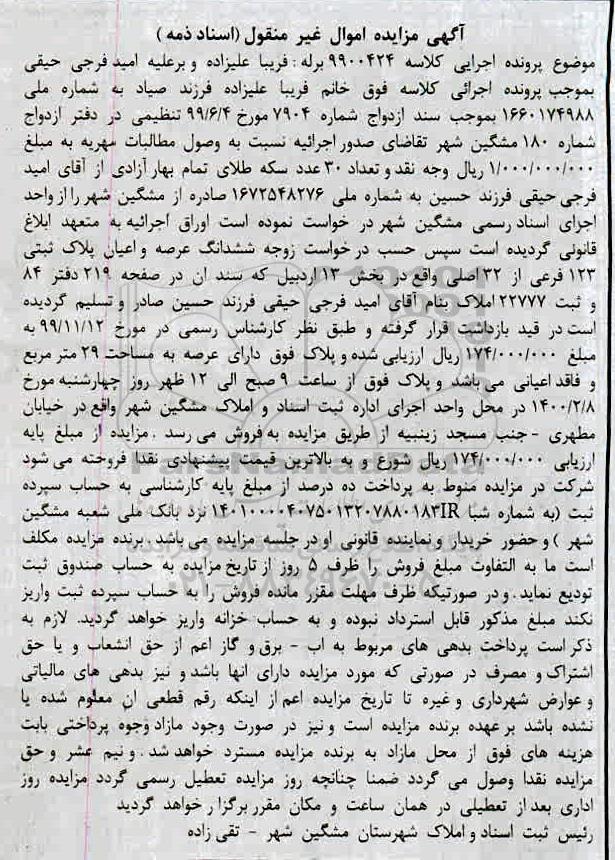 آگهی مزایده اموال غیر منقول (اسناد ذمه)
موضوع پرونده اجرایی کلاسه ۹۹۰۰۴۲۴ برله : فریبا علیزاده و برعلیه امید فرجی حیقی
بموجب پرونده اجرائی کلاسه فوق خانم فریبا علیزاده فرزند صیاد به شماره ملی
۱۶۶۰۱۷۴۹۸۸ بموجب سند ازدواج شماره ۷۹۰۴ مورخ ۹۹/۶/۴ تنظیمی در دفتر ازدواج
شماره ۱۸۰ مشگین شهر تقاضای صدور اجرائیه نسبت به وصول مطالبات مهریه به مبلغ
۱/۰۰۰/۰۰۰/۰۰۰ ریال وجه نقد و تعداد ۳۰ عدد سکه طلای تمام بهار آزادی از آقای امید
فرجی حیقی فرزند حسین به شماره ملی ۱۶۷۲۵۴۸۲۷۶ صادره از مشگین شهر را از واحد
اجرای اسناد رسمی مشگین شهر در خواست نموده است اوراق اجرائیه به متعهد ابلاغ
قانونی گردیده است سپس حسب در خواست زوجه ششدانگ عرصه و اعیان پلاک ثبتی
۱۲۳ فرعی از ۳۲ اصلی واقع در بخش ۱۳ اردبیل که سند ان در صفحه ۲۱۹ دفتر ۸۴
و ثبت ۲۲۷۷۷ املاک بنام آقای امید فرجی حیقی فرزند حسین صادر و تسلیم گردیده
است در قید بازداشت قرار گرفته و طبق نظر کارشناس رسمی در مورخ ۹۹/۱۱/۱۲ به
مبلغ ۱۷۴/۰۰۰/۰۰۰ ریال ارزیابی شده و پلاک فوق دارای عرصه به مساحت ۲۹ متر مربع
و فاقد اعیانی می باشد و پلاک فوق از ساعت ۹ صبح الی ۱۲ ظهر روز چهارشنبه مورخ
۱۴۰۰/۲/۸ در محل واحد اجرای اداره ثبت اسناد و املاک مشگین شهر واقع در خیابان
مطهری - جنب مسجد زینبیه از طریق مزایده به فروش می رسد . مزایده از مبلغ پایه
ارزیابی ۱۷۴/۰۰۰/۰۰۰ ریال شورع و به بالاترین قیمت پیشنهادی نقدا فروخته می شود
شرکت در مزایده منوط به پرداخت ده درصد از مبلغ پایه کارشناسی به حساب سپرده
ثبت (به شماره شبا ۱۴۰۱۰۰۰۰۴۰۷۵۰۱۳۲۰۷۸۸۰۱۸۳IR نزد بانک ملی شعبه مشگین
شهر ) و حضور خریدار و نماینده قانونی او در جلسه مزایده می باشد . برنده مزایده مکلف
است ما به التفاوت مبلغ فروش را ظرف ۵ روز از تاریخ مزایده به حساب صندوق ثبت
تودیع نماید . و در صورتیکه ظرف مهلت مقرر مانده فروش را به حساب سپرده ثبت واریز
نکند مبلغ مذکور قابل استرداد نبوده و به حساب خزانه واریز خواهد گردید. لازم به
ذکر است پرداخت بدهی های مربوط به اب - برق و گاز اعم از حق انشعاب و یا حق
اشتراک و مصرف در صورتی که مورد مزایده دارای انها باشد و نیز بدهی های مالیاتی
و عوارض شهرداری و غیره تا تاریخ مزایده اعم از اینکه رقم قطعی ان معلوم شده یا
نشده باشد بر عهده برنده مزایده است و نیز در صورت وجود مازاد وجوه پرداختی بابت
هزینه های فوق از محل مازاد به برنده مزایده مسترد خواهد شد . و نیم عشر و حق
مزایده نقدا وصول می گردد ضمنا چنانچه روز مزایده تعطیل رسمی گردد مزایده روز
اداری بعد از تعطیلی در همان ساعت و مکان مقرر برگزار خواهد گردید
رئیس ثبت اسناد و املاک شهرستان مشگین شهر - تقی زاده